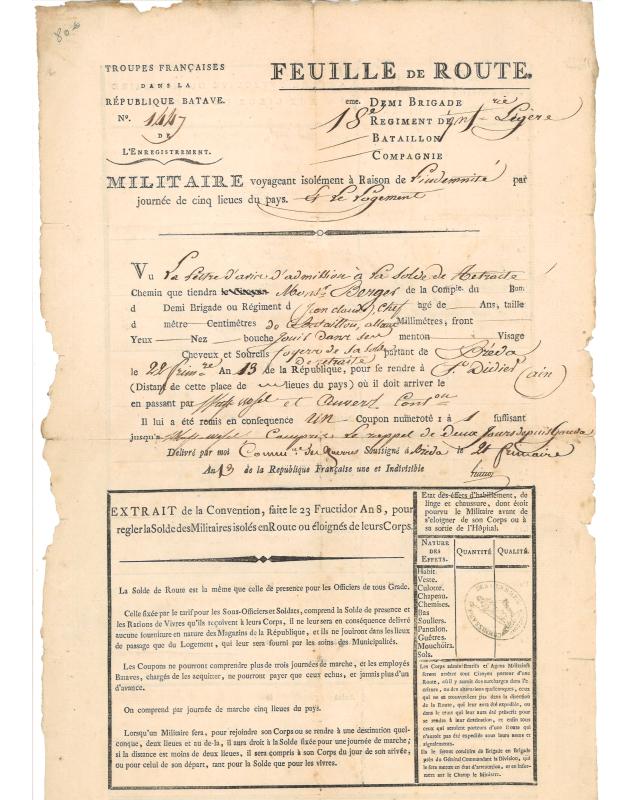 80
TROUPES FRANÇAISES
DANS LA
RÉPUBLIQUE BATAVE.
N°. 1447
DE
L'ENREGISTREMENT.
FEUILLE DE ROUTE.
eme. DEMI BRIGADE
18e REGIMENT DE Légère
BATAILLON
COMPAGNIE
MILITAIRE voyageant isolément à Raison de l'indemnité par
journée de cinq lieues du pays. et le logement
VU la lettre d'avis d'admission à la solde de Retraite
Chemin que tiendra le Citoyen Monsr. Berger de la Compie. du Bon.
d Demi Brigade ou Régiment d (Jean claude), Chef agé de Ans, taille
d mètre Centimètres de Bataillon, allant Millimètres, front
Yeux Nez bouche jouir dans ses menton Visage
Cheveux et Sourcils foyers de sa solde partant de Bréda
de retraite
le 22 frimre. An 13 de la République, pour se rendre à St. Didier (ain)
(Distant de cette place de lieues du pays) où il doit arriver le
en passant par et Anvers
Il lui a été remis en consequence un Coupon numeroté 1 à 1 suffisant
jusqu'a Compris le rappel de deux Jours depuis Gouda
Délivré par moi Commre. des Guerres Soussigné à Bréda le 21 frimaire
An 13 de la République Française une et Indivisible
EXTRAIT de la Convention, faite le 23 Fructidor An 8, pour
regler la Solde des Militaires isolés en Route ou éloignés de leurs Corps.
La Solde de Route est la même que celle de presence pour les Officiers de tous Grade.
Celle fixée par le tarif pour les Sous-Officiers et Soldats, comprend la Solde de presence et
les Rations de Vivres qu'ils reçoivent à leurs Corps, il ne leur sera en conséquence délivré
aucune fourniture en nature des Magazins de la République, et ils ne jouiront dans les lieux
de passage que du Logement, qui leur sera fourni par les soins des Municipalités.
Les Coupons ne pourront comprendre plus de trois journées de marche, et les employés
Bataves, chargés de les acquitter, ne pourront payer que ceux echus, et jamais plus d'un
d'avance.
On comprend par journée de marche cinq lieues du pays.
Lorsqu'un Militaire sera, pour rejoindre son Corps ou se rendre à une destination quel-
conque, deux lieues et au de-la, il aura droit à la Solde fixée pour une journée de marche;
si la distance est moins de deux lieues, il sera compris à son Corps du jour de son arrivée,
ou pour celui de son départ, tant pour la Solde que pour les vivres.
Etat des éffets d'habillement, de
linge et chaussure, dont étoit
pourvu le Militaire avant de
s'eloigner de son Corps ou à
sa sortie de l'Hôpital.
NATURE DES EFFETS. QUANTITÉ. QUALITÉ.
Habit.
Veste.
Culotte.
Chapeau.
Chemises.
Bas
Souliers.
Pantalon.
Guêtres.
Mouchoirs.
Sols.
Les Corps administratifs et Agens Militaires
feront arrêter tout Citoyen porteur d'une
Route, où il y aurait des surcharges dans l'e-
criture, ou des alterations quelconques, ceux
qui ne se trouveroient pas dans la direction
de la Route, qui leur aura été expédiée, ou
dans le cas qui leur aura été préscrit pour
se rendre à leur destination, et enfin tous
ceux qui seroient porteurs d'une Route qui
n'auroit pas été expédiée sous leurs noms et
signalemens.
Ils le feront conduire de Brigade en Brigade
près du Général Commandant la Division, qui
le fera mettre en état d'arrestation, et en infor-
mera sur le Champ le Ministre.